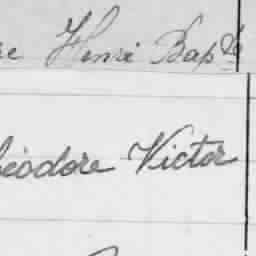 re Henri Bapte
héodore Victor